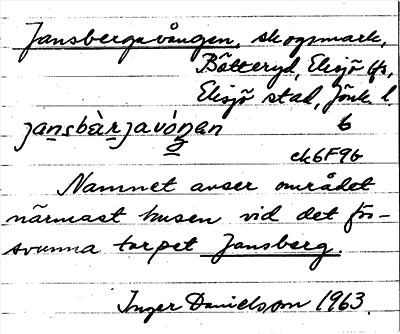 Jansbergavången, skogsmark,
Båtteryd, Eksjö lfs,
Eksjö stad, Jönk. l.
jansbàrjavóŋen 6
ek6F9b
Namnet avser området
närmast husen vid det för-
svunna torpet Jansberg.
Inger Danielsson 1963.